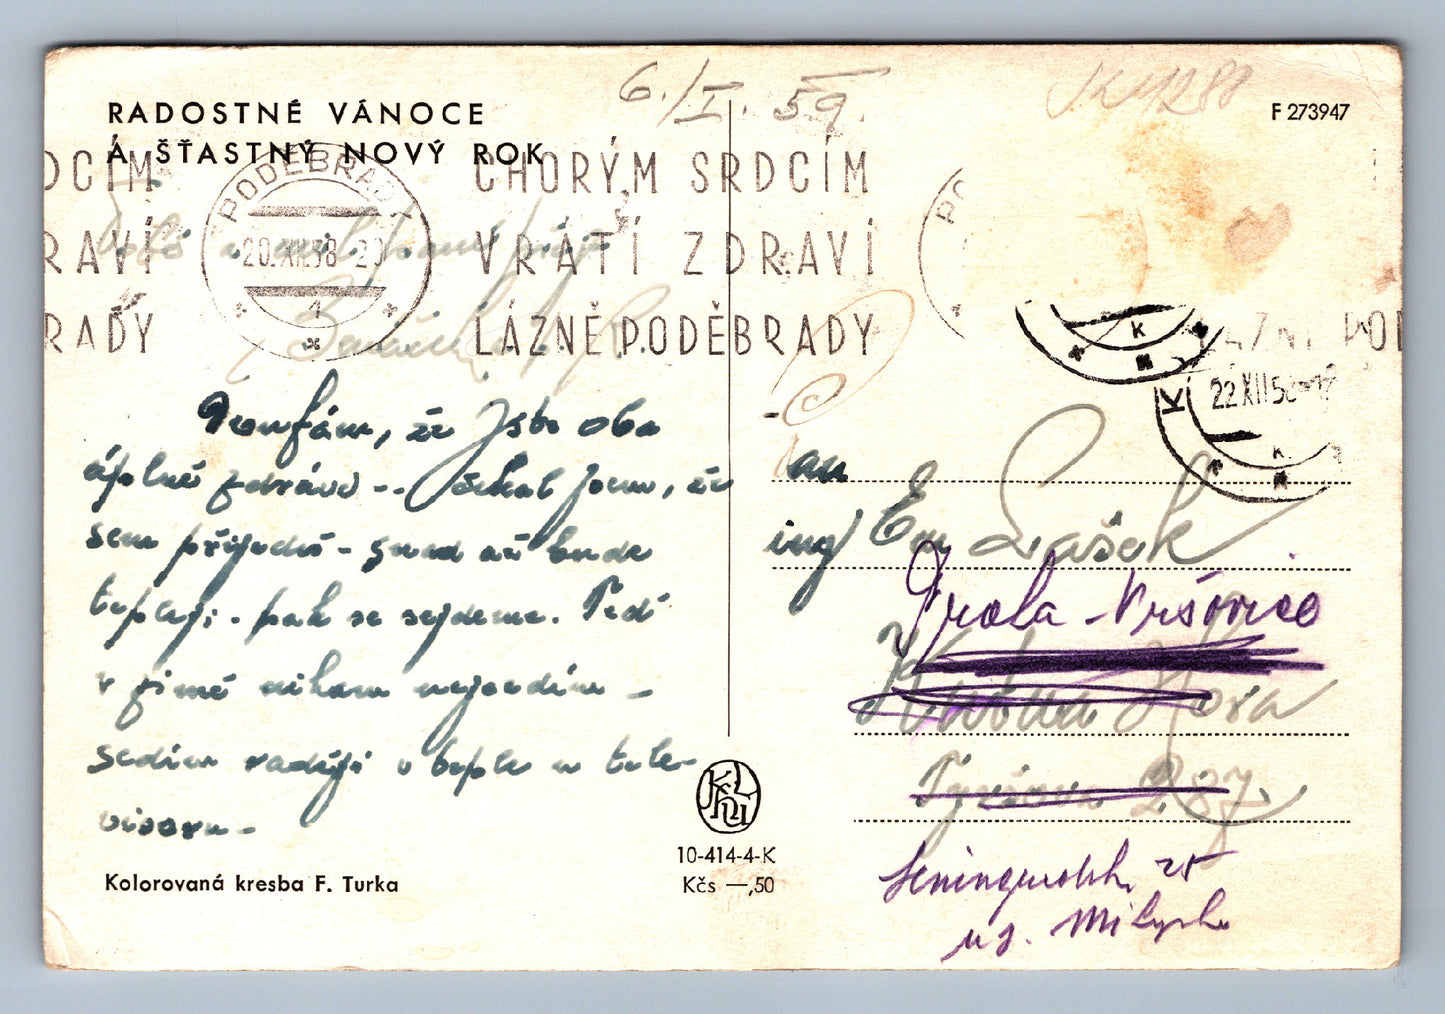 RADOSTNÉ VÁNOCE
A ŠŤASTNÝ NOVÝ ROK
6./I. 59.
F 273947
DCÍM
RAVÍ
RADY
PODĚBRADY
20.XII.58-20
1
CHORÝM SRDCÍM
VRÁTÍ ZDRAVÍ
LÁZNĚ PODĚBRADY
PO
LÁZNĚ POD
K
22 XII 58
K
K
Doufám, že jste oba
úplně zdrávi -- čekal jsem, že
sem přijedeš - snad až bude
tepleji - pak se sejdeme. Teď
v zimě nikam nejezdím -
sedím raději v teple u tele-
visoru -
Kolorovaná kresba F. Turka
10-414-4-K
Kčs —,50
Pan
ing Em Lašek
Praha - Vršovice
Kutná Hora
Tyršova 287
25